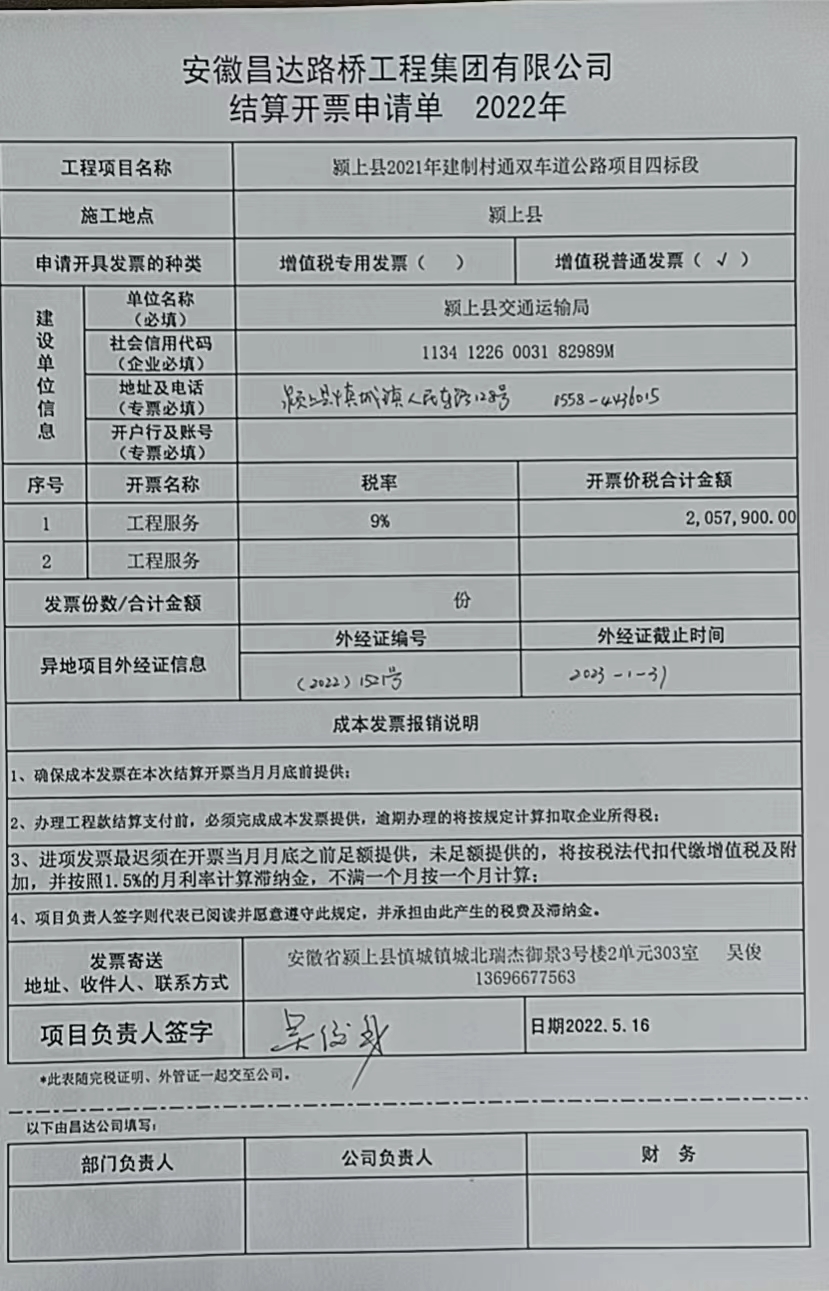 安徽昌达路桥工程集团有限公司
结算开票申请单 2022年
工程项目名称 颍上县2021年建制村通双车道公路项目四标段
施工地点 颍上县
申请开具发票的种类 增值税专用发票（ ） 增值税普通发票（ √ ）
建设单位信息
单位名称（必填） 颍上县交通运输局
社会信用代码（企业必填） 1134 1226 0031 82989M
地址及电话（专票必填） 颍上县慎城镇人民东路128号 1558-4436015
开户行及账号（专票必填）
序号 开票名称 税率 开票价税合计金额
1 工程服务 9% 2,057,900.00
2 工程服务
发票份数/合计金额 份
异地项目外经证信息 外经证编号 外经证截止时间
（2022）1521号 2023-1-31
成本发票报销说明
1、确保成本发票在本次结算开票当月月底前提供；
2、办理工程款结算支付前，必须完成成本发票提供，逾期办理的将按规定计算扣取企业所得税；
3、进项发票最迟须在开票当月月底之前足额提供，未足额提供的，将按税法代扣代缴增值税及附
加，并按照1.5%的月利率计算滞纳金，不满一个月按一个月计算；
4、项目负责人签字则代表已阅读并愿意遵守此规定，并承担由此产生的税费及滞纳金。
发票寄送
地址、收件人、联系方式
安徽省颍上县慎城镇城北瑞杰御景3号楼2单元303室 吴俊
13696677563
项目负责人签字 日期2022.5.16
*此表随完税证明、外管证一起交至公司。
以下由昌达公司填写：
部门负责人 公司负责人 财 务